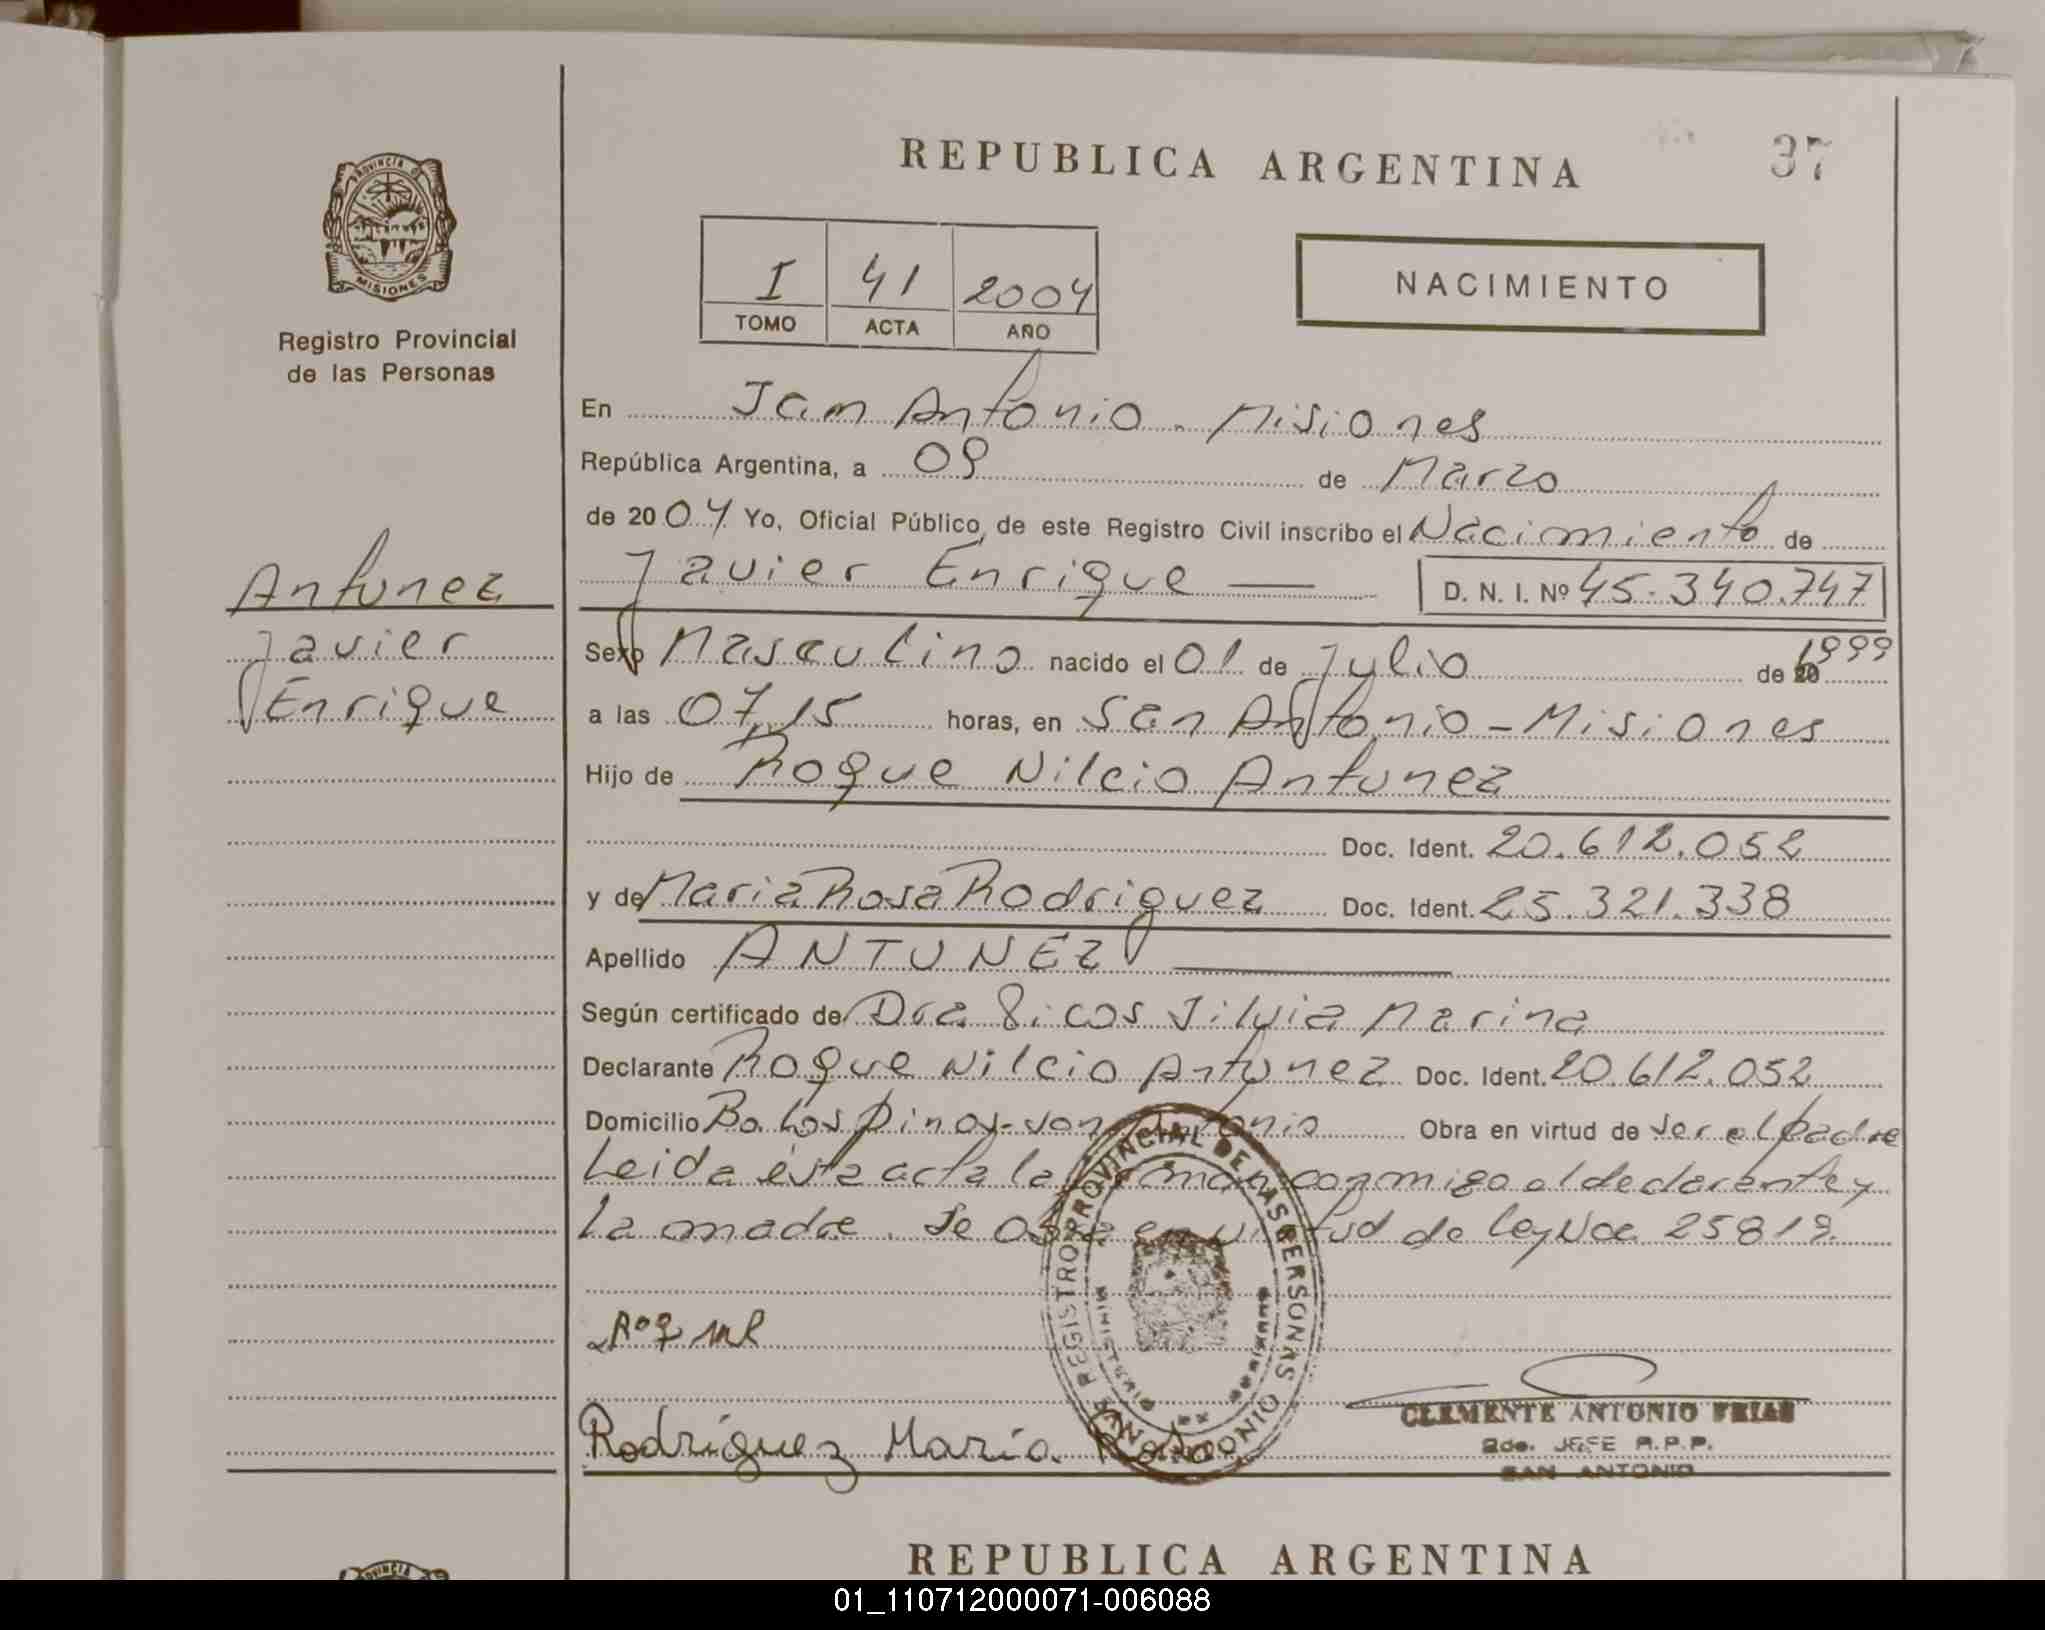 REPUBLICA ARGENTINA
37
PROVINCIA DE
MISIONES
Registro Provincial
de las Personas
I 41 2004
TOMO ACTA AÑO
NACIMIENTO
En San Antonio - Misiones
República Argentina, a 09 de Marzo
de 2004 Yo, Oficial Público, de este Registro Civil inscribo el Nacimiento de
Javier Enrique D. N. I. Nº 45.340.747
Antunez
Javier
Enrique
Sexo Masculino nacido el 01 de Julio de 20 1999
a las 07,15 horas, en San Antonio - Misiones
Hijo de Roque Nilcio Antunez
Doc. Ident. 20.612.052
y de Maria Rosa Rodriguez Doc. Ident. 25.321.338
Apellido ANTUNEZ
Según certificado de Dra Silvia Marina
Declarante Roque Nilcio Antunez Doc. Ident. 20.612.052
Domicilio Bo. Los pinos - san Antonio Obra en virtud de ser el padre
Leida ésta acta la firman conmigo el declarante y
La madre. Se obra en virtud de Ley Nac 25819.
REGISTRO PROVINCIAL DE LAS PERSONAS
Rodríguez María Rosa
CLEMENTE ANTONIO FRIAS
2do. JEFE R.P.P.
SAN ANTONIO
REPUBLICA ARGENTINA
01_110712000071-006088